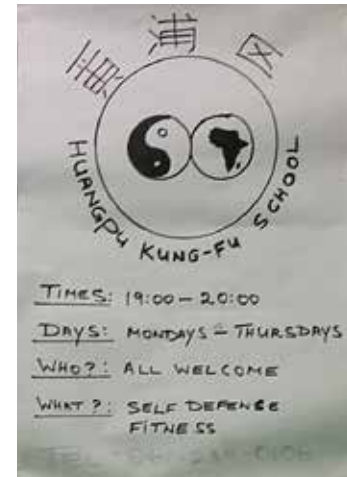 黄浦区
HUANGPU KUNG-FU SCHOOL
TIMES: 19:00 - 20:00
DAYS: MONDAYS - THURSDAYS
WHO?: ALL WELCOME
WHAT?: SELF DEFENSE
FITNESS